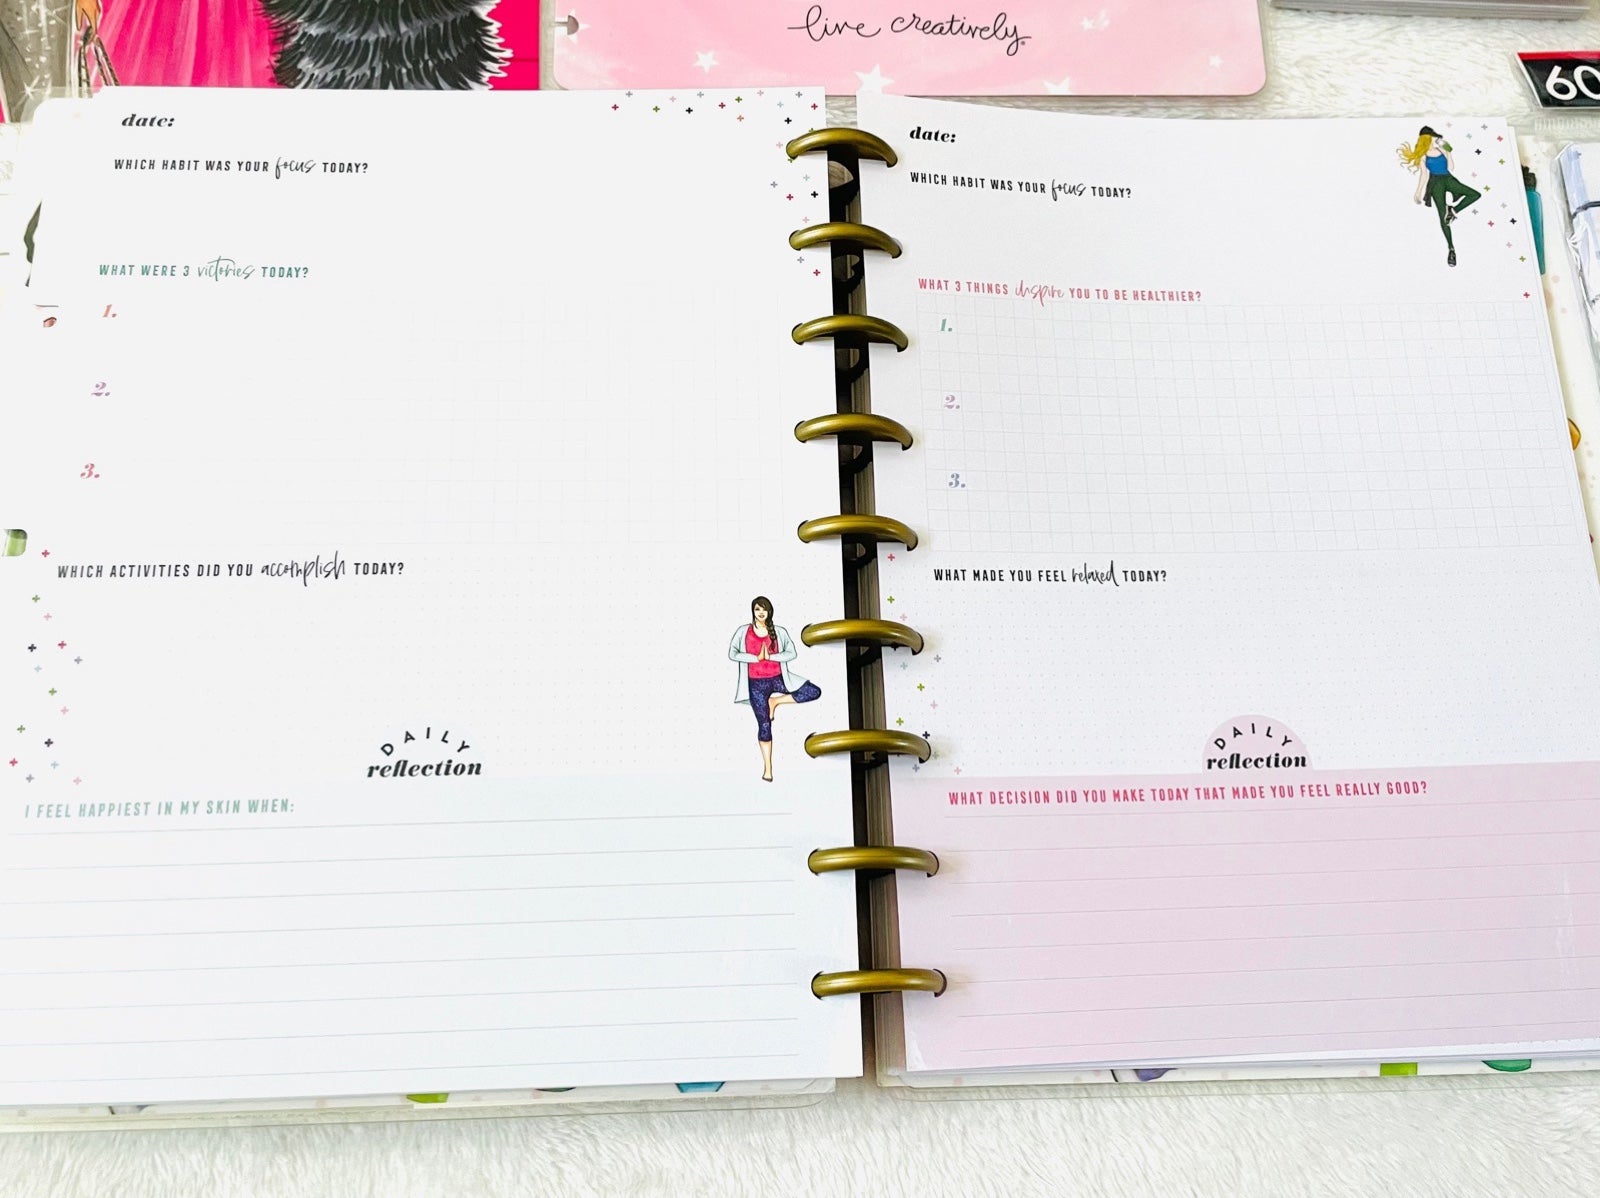 live creatively
60
date:
WHICH HABIT WAS YOUR focus TODAY?
WHAT WERE 3 victories TODAY?
1.
2.
3.
WHICH ACTIVITIES DID YOU accomplish TODAY?
DAILY
reflection
I FEEL HAPPIEST IN MY SKIN WHEN:
date:
WHICH HABIT WAS YOUR focus TODAY?
WHAT 3 THINGS inspire YOU TO BE HEALTHIER?
1.
2.
3.
WHAT MADE YOU FEEL relaxed TODAY?
DAILY
reflection
WHAT DECISION DID YOU MAKE TODAY THAT MADE YOU FEEL REALLY GOOD?